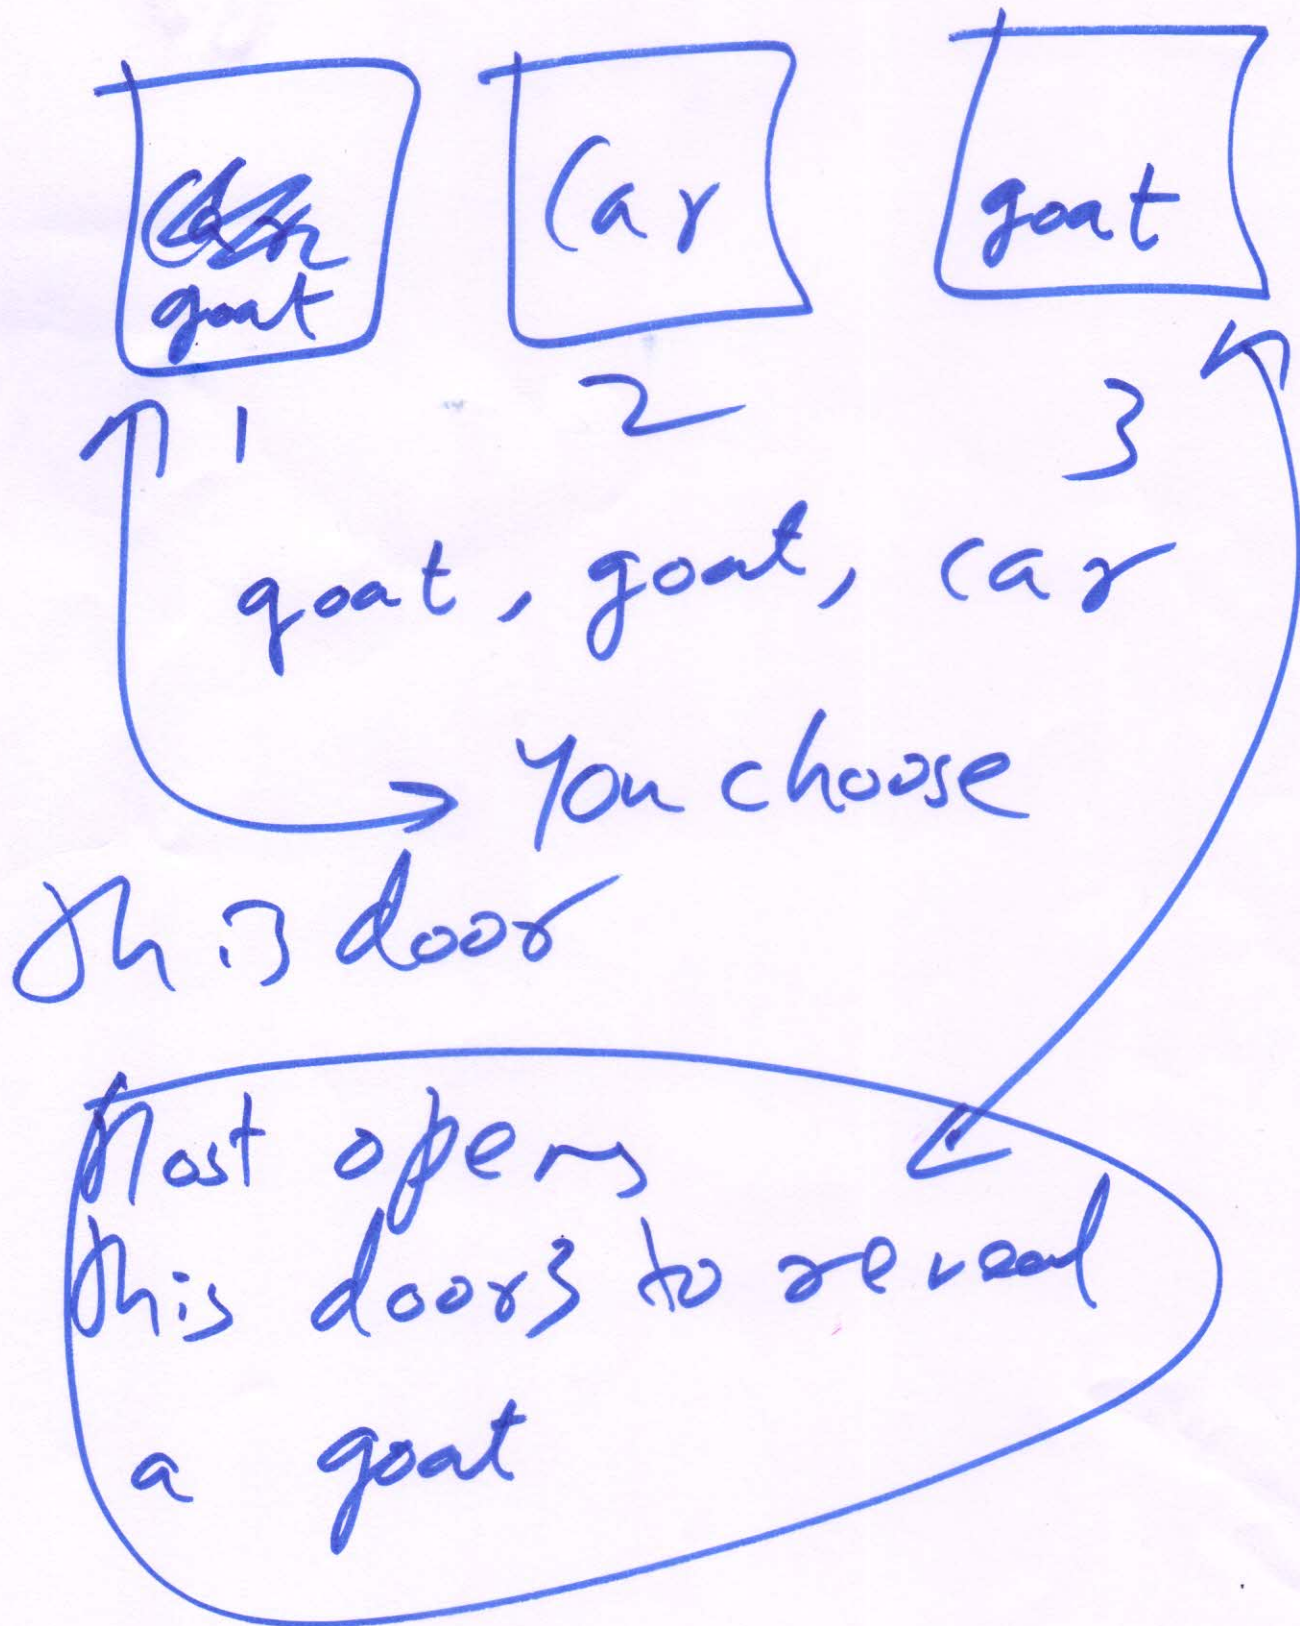 goat
Car
goat
1 2 3
goat, goat, car
You choose
this door
Host opens
this door 3 to reveal
a goat